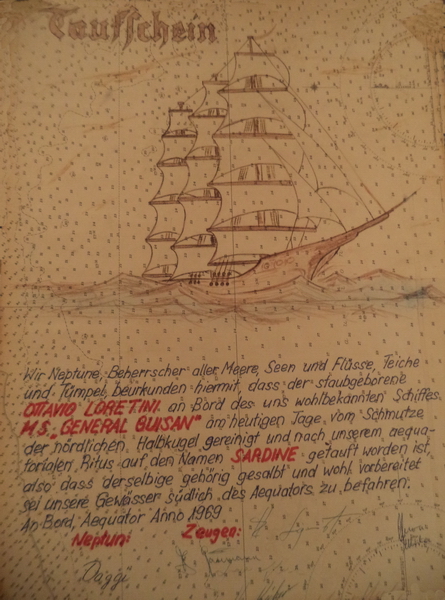 Taufschein
Wir Neptune, Beherrscher aller Meere, Seen und Flüsse, Teiche
und Tümpel, beurkunden hiermit, dass der staubgeborene
OTTAVIO LORETINI an Bord des uns wohlbekannten Schiffes
M.S. „GENERAL GUISAN" am heutigen Tage vom Schmutze
der nördlichen Halbkugel gereinigt und nach unserem aequa-
torialen Ritus auf den Namen SARDINE getauft worden ist,
also dass derselbige gehörig gesalbt und wohl vorbereitet
sei unsere Gewässer südlich des Aequators zu befahren.
An Bord, Aequator Anno 1969
Neptun: Zeugen:
Daggi